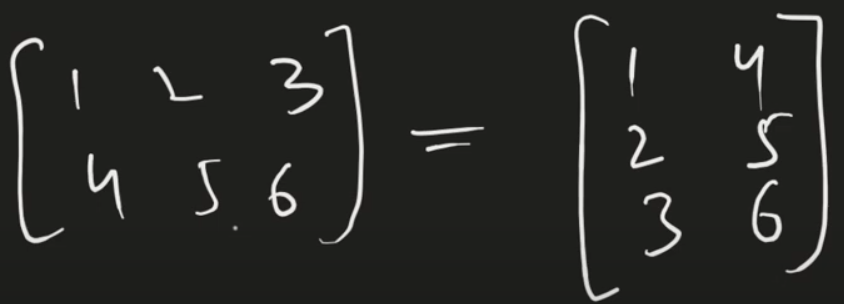 [1 2 3
4 5 6] = [1 4
2 5
3 6]